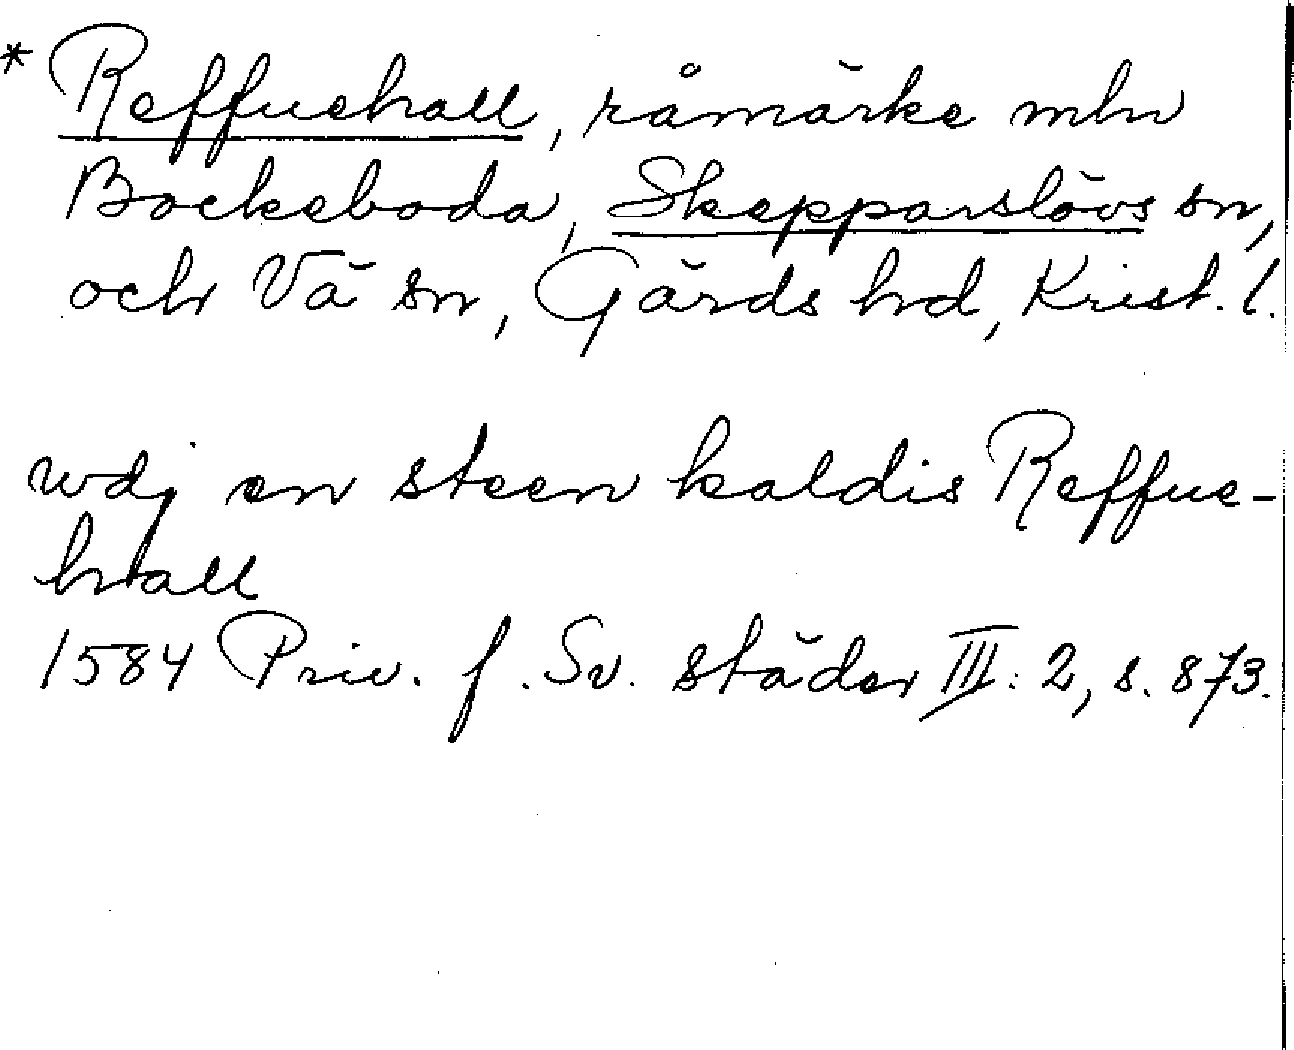 * Reffuehall, råmärke mln
Bockeboda, Skepparslövs sn,
och Vä sn, Gärds hd, Krist. l.
wdj en steen kaldis Reffue-
hall
1584 Priv. f. Sv. städer III: 2, s. 873.